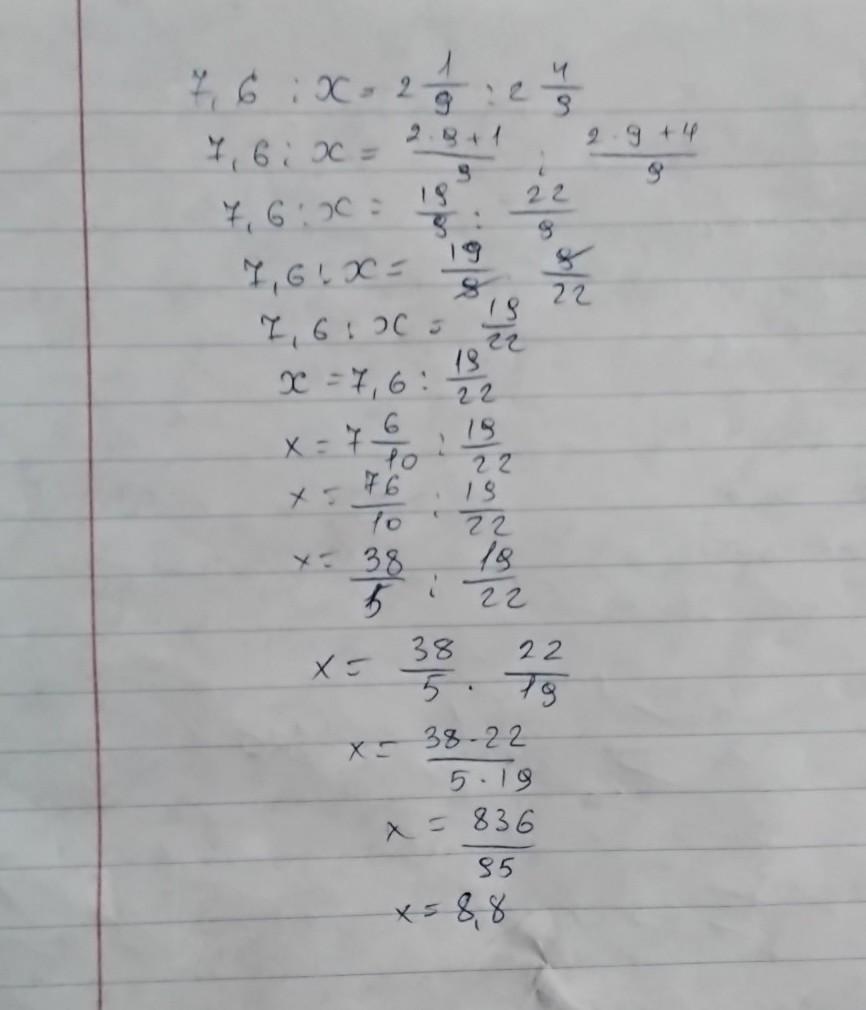 7,6 : x = 2 1/9 : 2 4/9
7,6 : x = (2·9+1)/9 : (2·9+4)/9
7,6 : x = 19/9 : 22/9
7,6 : x = 19/9 9/22
7,6 : x = 19/22
x = 7,6 : 19/22
x = 7 6/10 : 19/22
x = 76/10 : 19/22
x = 38/5 : 19/22
x = 38/5 · 22/19
x = (38·22)/(5·19)
x = 836/95
x = 8,8